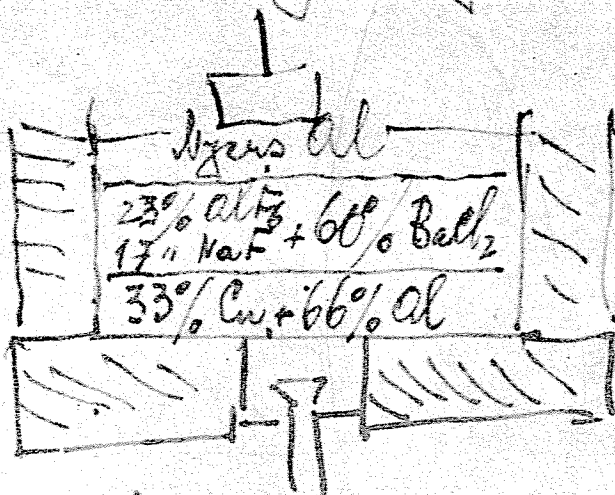 Nyers Al
23% AlF3
17 " NaF + 60% BaCl2
33% Cu + 66% Al